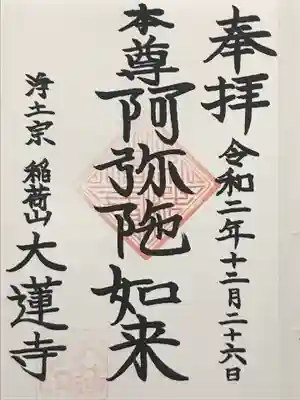 奉拝
令和二年十二月二十六日
本尊
阿弥陀如来
浄土宗 稲荷山 大蓮寺